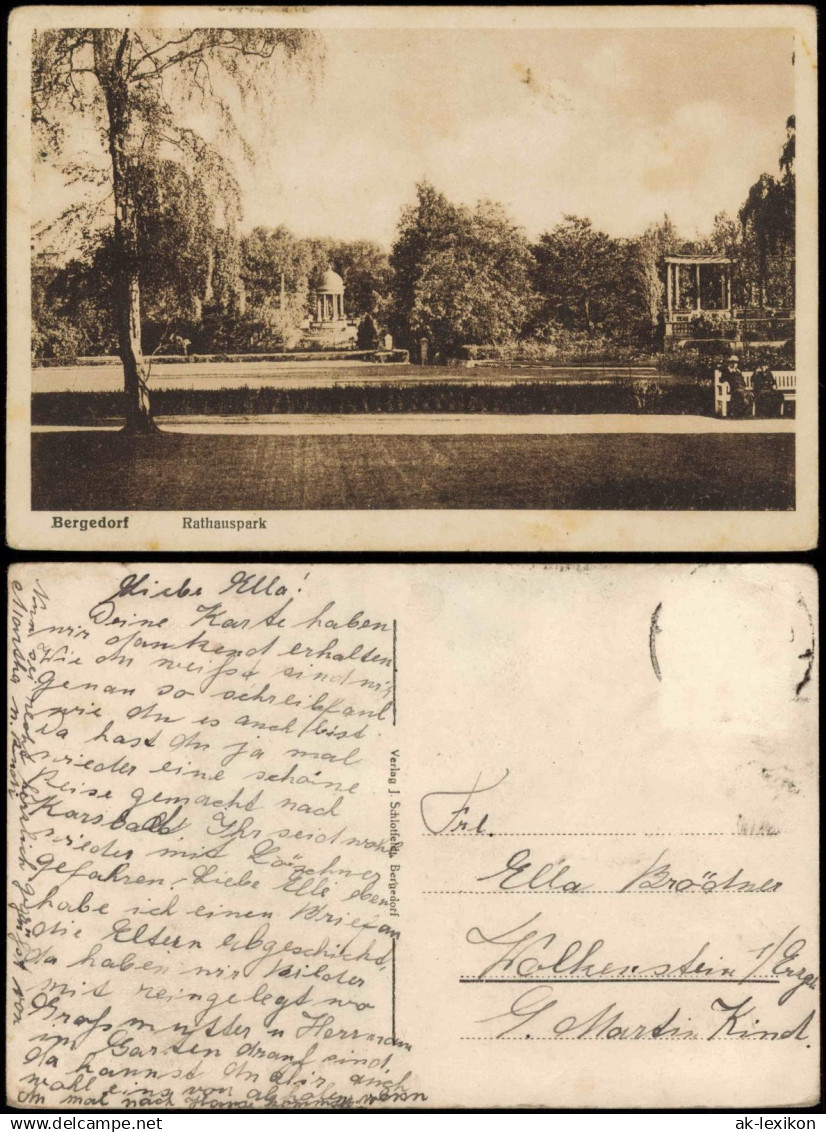 Bergedorf Rathauspark
Liebe Ella!
Deine Karte haben
wir dankend erhalten.
Wie du weißt sind wir
genau so schreibfaul
wie du es auch bist.
Da hast du ja mal
wieder eine schöne
Reise gemacht nach
Karsbad. Ihr seid wohl
wieder mit Löschner
gefahren. Liebe Elli eben
habe ich einen Brief an
die Eltern abgeschickt,
da haben wir Bilder
mit reingelegt wo
Großmutter u Herrmann
im Garten drauf sind,
da kannst du dir auch
wohl eins von abholen wenn
du mal nach Hause kommst.
Nun sei recht herzlich gegrüßt von
Martha u.
Verlag J. Schloffeldt, Bergedorf
Frl.
Ella Brödner
Wolkenstein i/Erzg.
G. Martin Kind.
www.ak-ansichtskarten.de
ak-lexikon